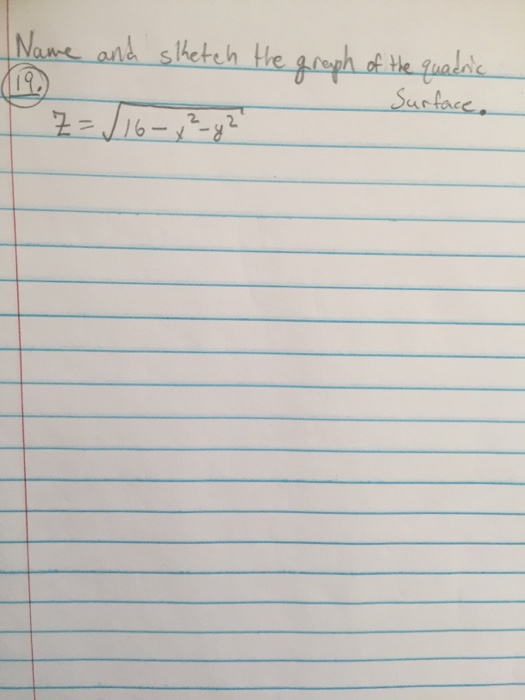 Name and sketch the graph of the quadric
19.
Surface.
Z = √16 - x² - y²